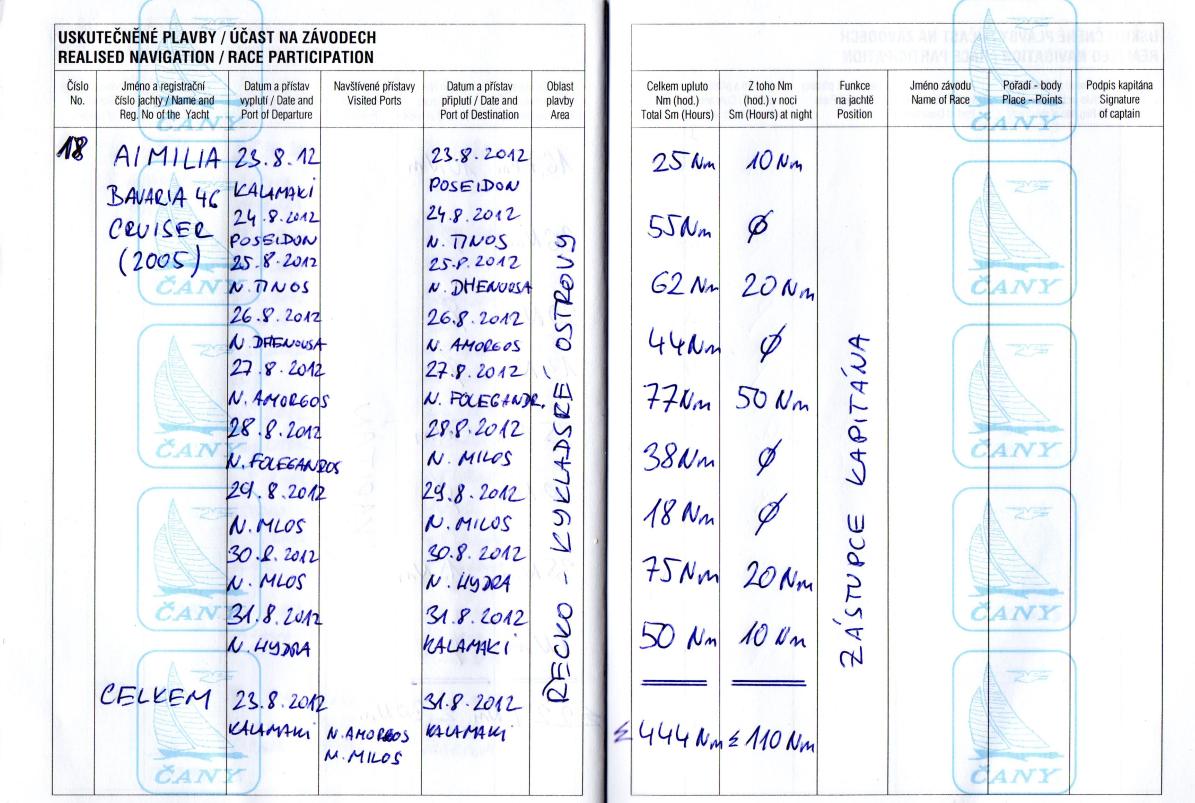 USKUTEČNĚNÉ PLAVBY / ÚČAST NA ZÁVODECH
REALISED NAVIGATION / RACE PARTICIPATION
Číslo No. Jméno a registrační číslo jachty / Name and Reg. No of the Yacht Datum a přístav vyplutí / Date and Port of Departure Navštívené přístavy Visited Ports Datum a přístav připlutí / Date and Port of Destination Oblast plavby Area Celkem upluto Nm (hod.) Total Sm (Hours) Z toho Nm (hod.) v noci Sm (Hours) at night Funkce na jachtě Position Jméno závodu Name of Race Pořadí - body Place - Points Podpis kapitána Signature of captain
18 AIMILIA 23.8.12 23.8.2012 25 Nm 10 Nm
BAVARIA 46 KALAMAKI POSEIDON
CRUISER 24.8.2012 24.8.2012 55 Nm Ø
(2005) POSEIDON N. TINOS
25.8.2012 25.8.2012 62 Nm 20 Nm
N. TINOS N. DHENOUSA
26.8.2012 26.8.2012 44 Nm Ø
N. DHENOUSA N. AMORGOS
27.8.2012 27.8.2012 77 Nm 50 Nm
N. AMORGOS N. FOLEGANDR.
28.8.2012 28.8.2012 38 Nm Ø
N. FOLEGANDROS N. MILOS
29.8.2012 29.8.2012 18 Nm Ø
N. MLOS N. MILOS
30.8.2012 30.8.2012 75 Nm 20 Nm
N. MLOS N. HYDRA
31.8.2012 31.8.2012 50 Nm 10 Nm
N. HYDRA KALAMAKI
ŘECKO - KYKLADSKÉ OSTROVY
ZÁSTUPCE KAPITÁNA
CELKEM 23.8.2012 31.8.2012 Σ 444 Nm Σ 110 Nm
KALAMAKI N. AMORGOS KALAMAKI
N. MILOS
ČANY
ČANY
ČANY
ČANY
ČANY
ČANY
ČANY
ČANY
ČANY
ČANY